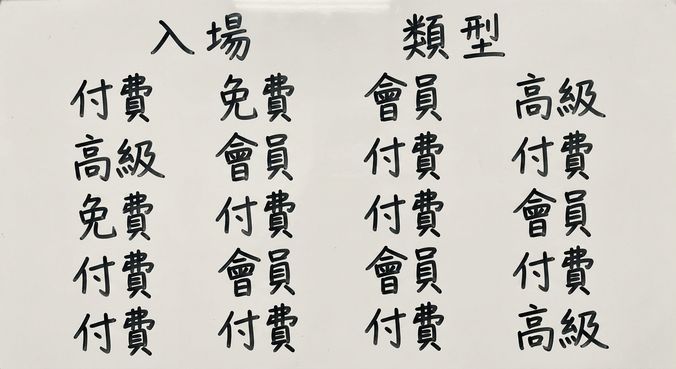 入場 類型
付費 免費 會員 高級
高級 會員 付費 付費
免費 付費 付費 會員
付費 會員 會員 付費
付費 付費 付費 高級